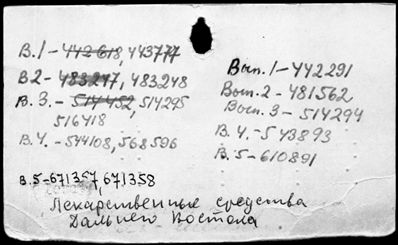 В.1 – 442618, 443777
В2 – 483247, 483248
В.3. – 514452, 514295
516418
В.4. – 544108, 568596
В.5 – 671357, 671358
Вып. 1 – 442291
Вып. 2 – 481562
Вып. 3 – 514294
В.4. – 543893
В.5 – 610891
Лекарственные средства
Дальнего Востока